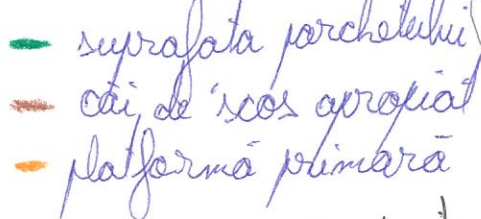 suprafața parchetului
căi de scos apropiat
platformă primară